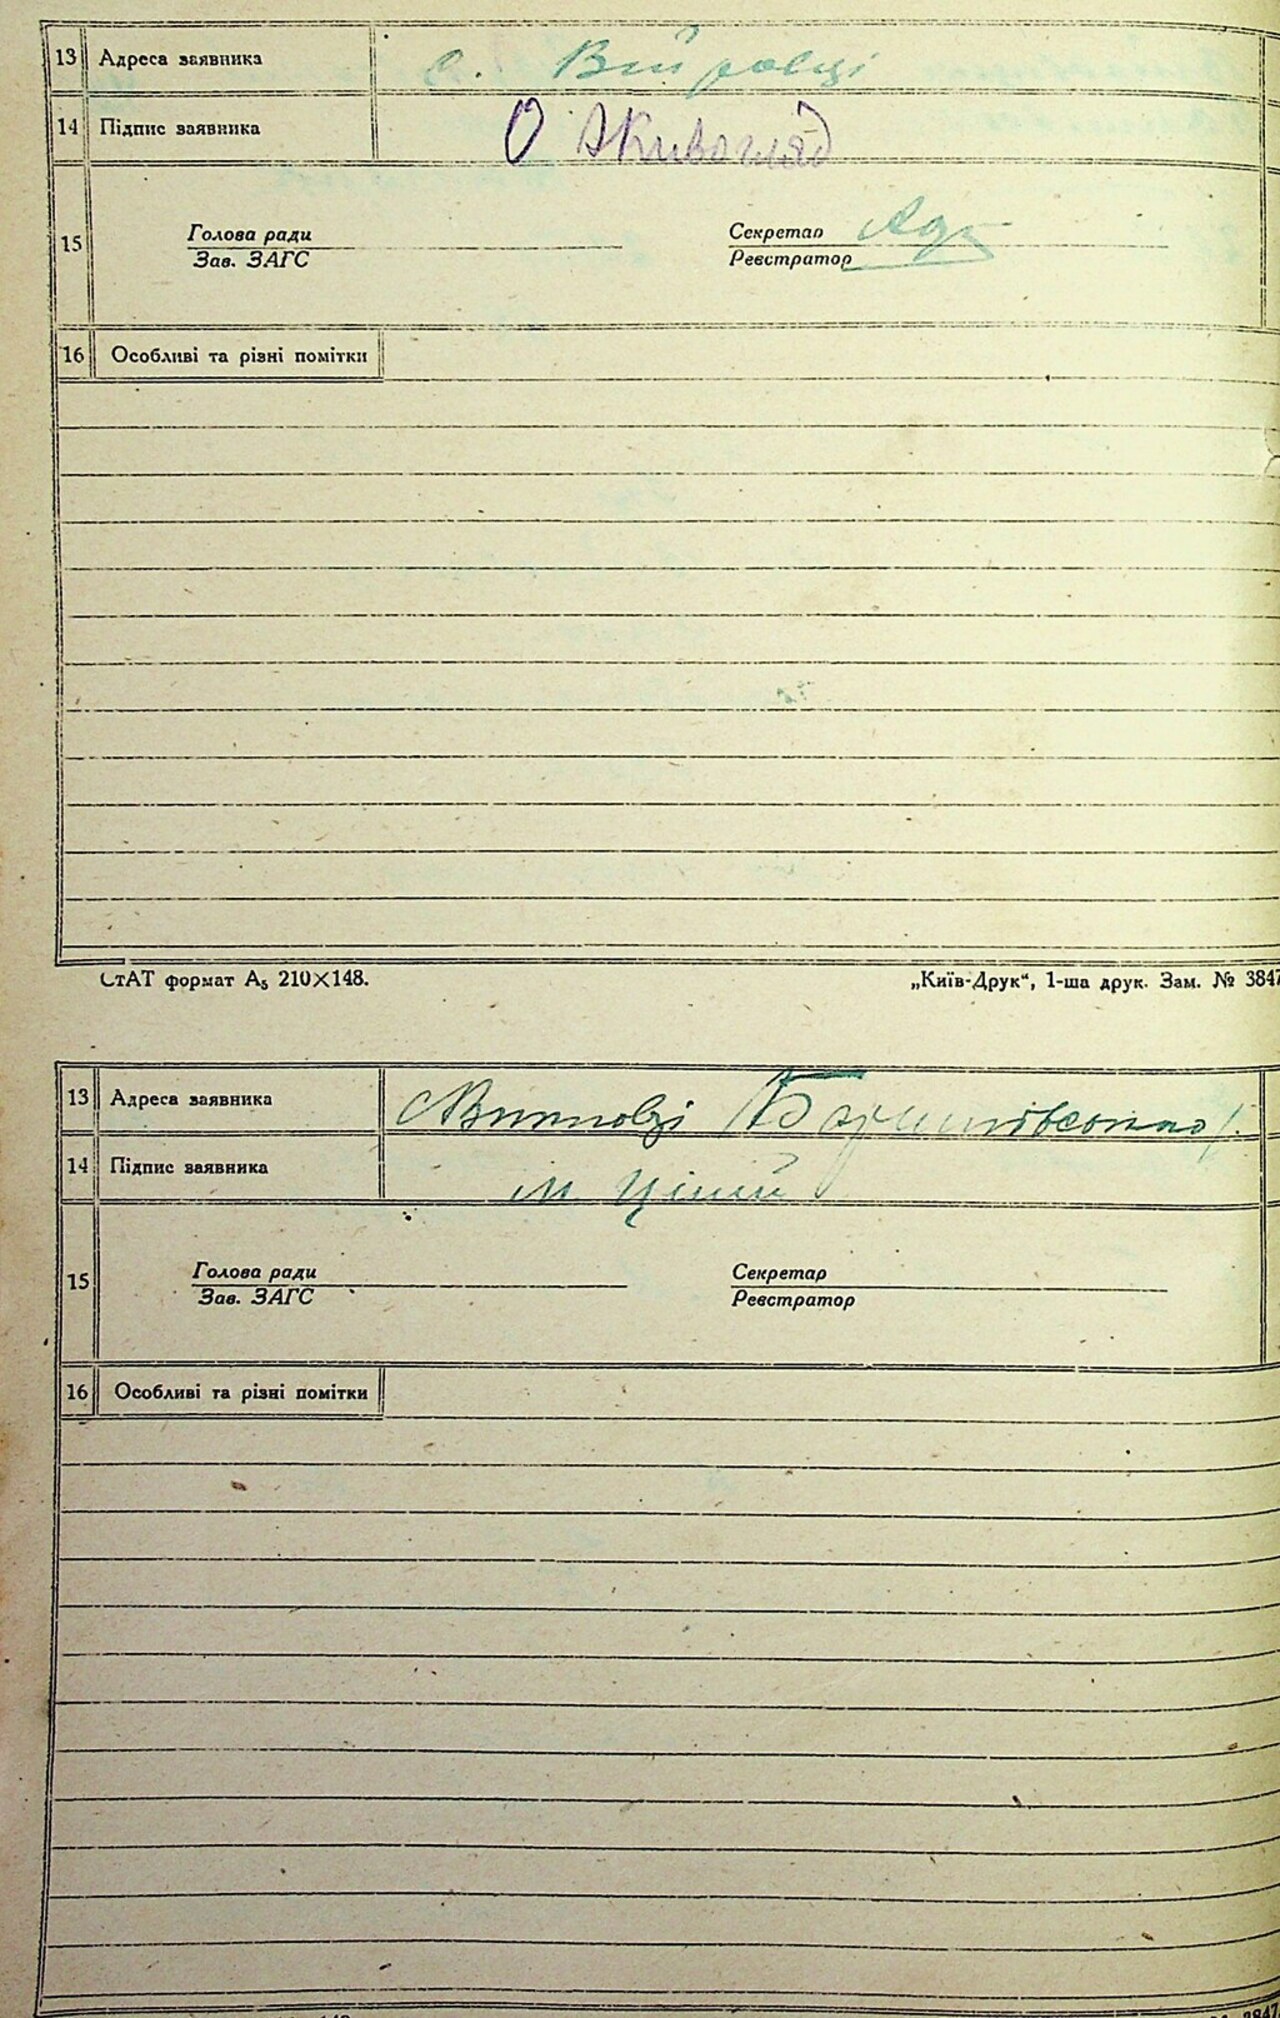 13 Адреса заявника с. Війтовці
14 Підпис заявника О Живогляд
15 Голова ради Секретар
Зав. ЗАГС Реєстратор
16 Особливі та різні помітки
СтАТ формат А5 210×148. „Київ-Друк“, 1-ша друк. Зам. № 3847
13 Адреса заявника
14 Підпис заявника
15 Голова ради Секретар
Зав. ЗАГС Реєстратор
16 Особливі та різні помітки